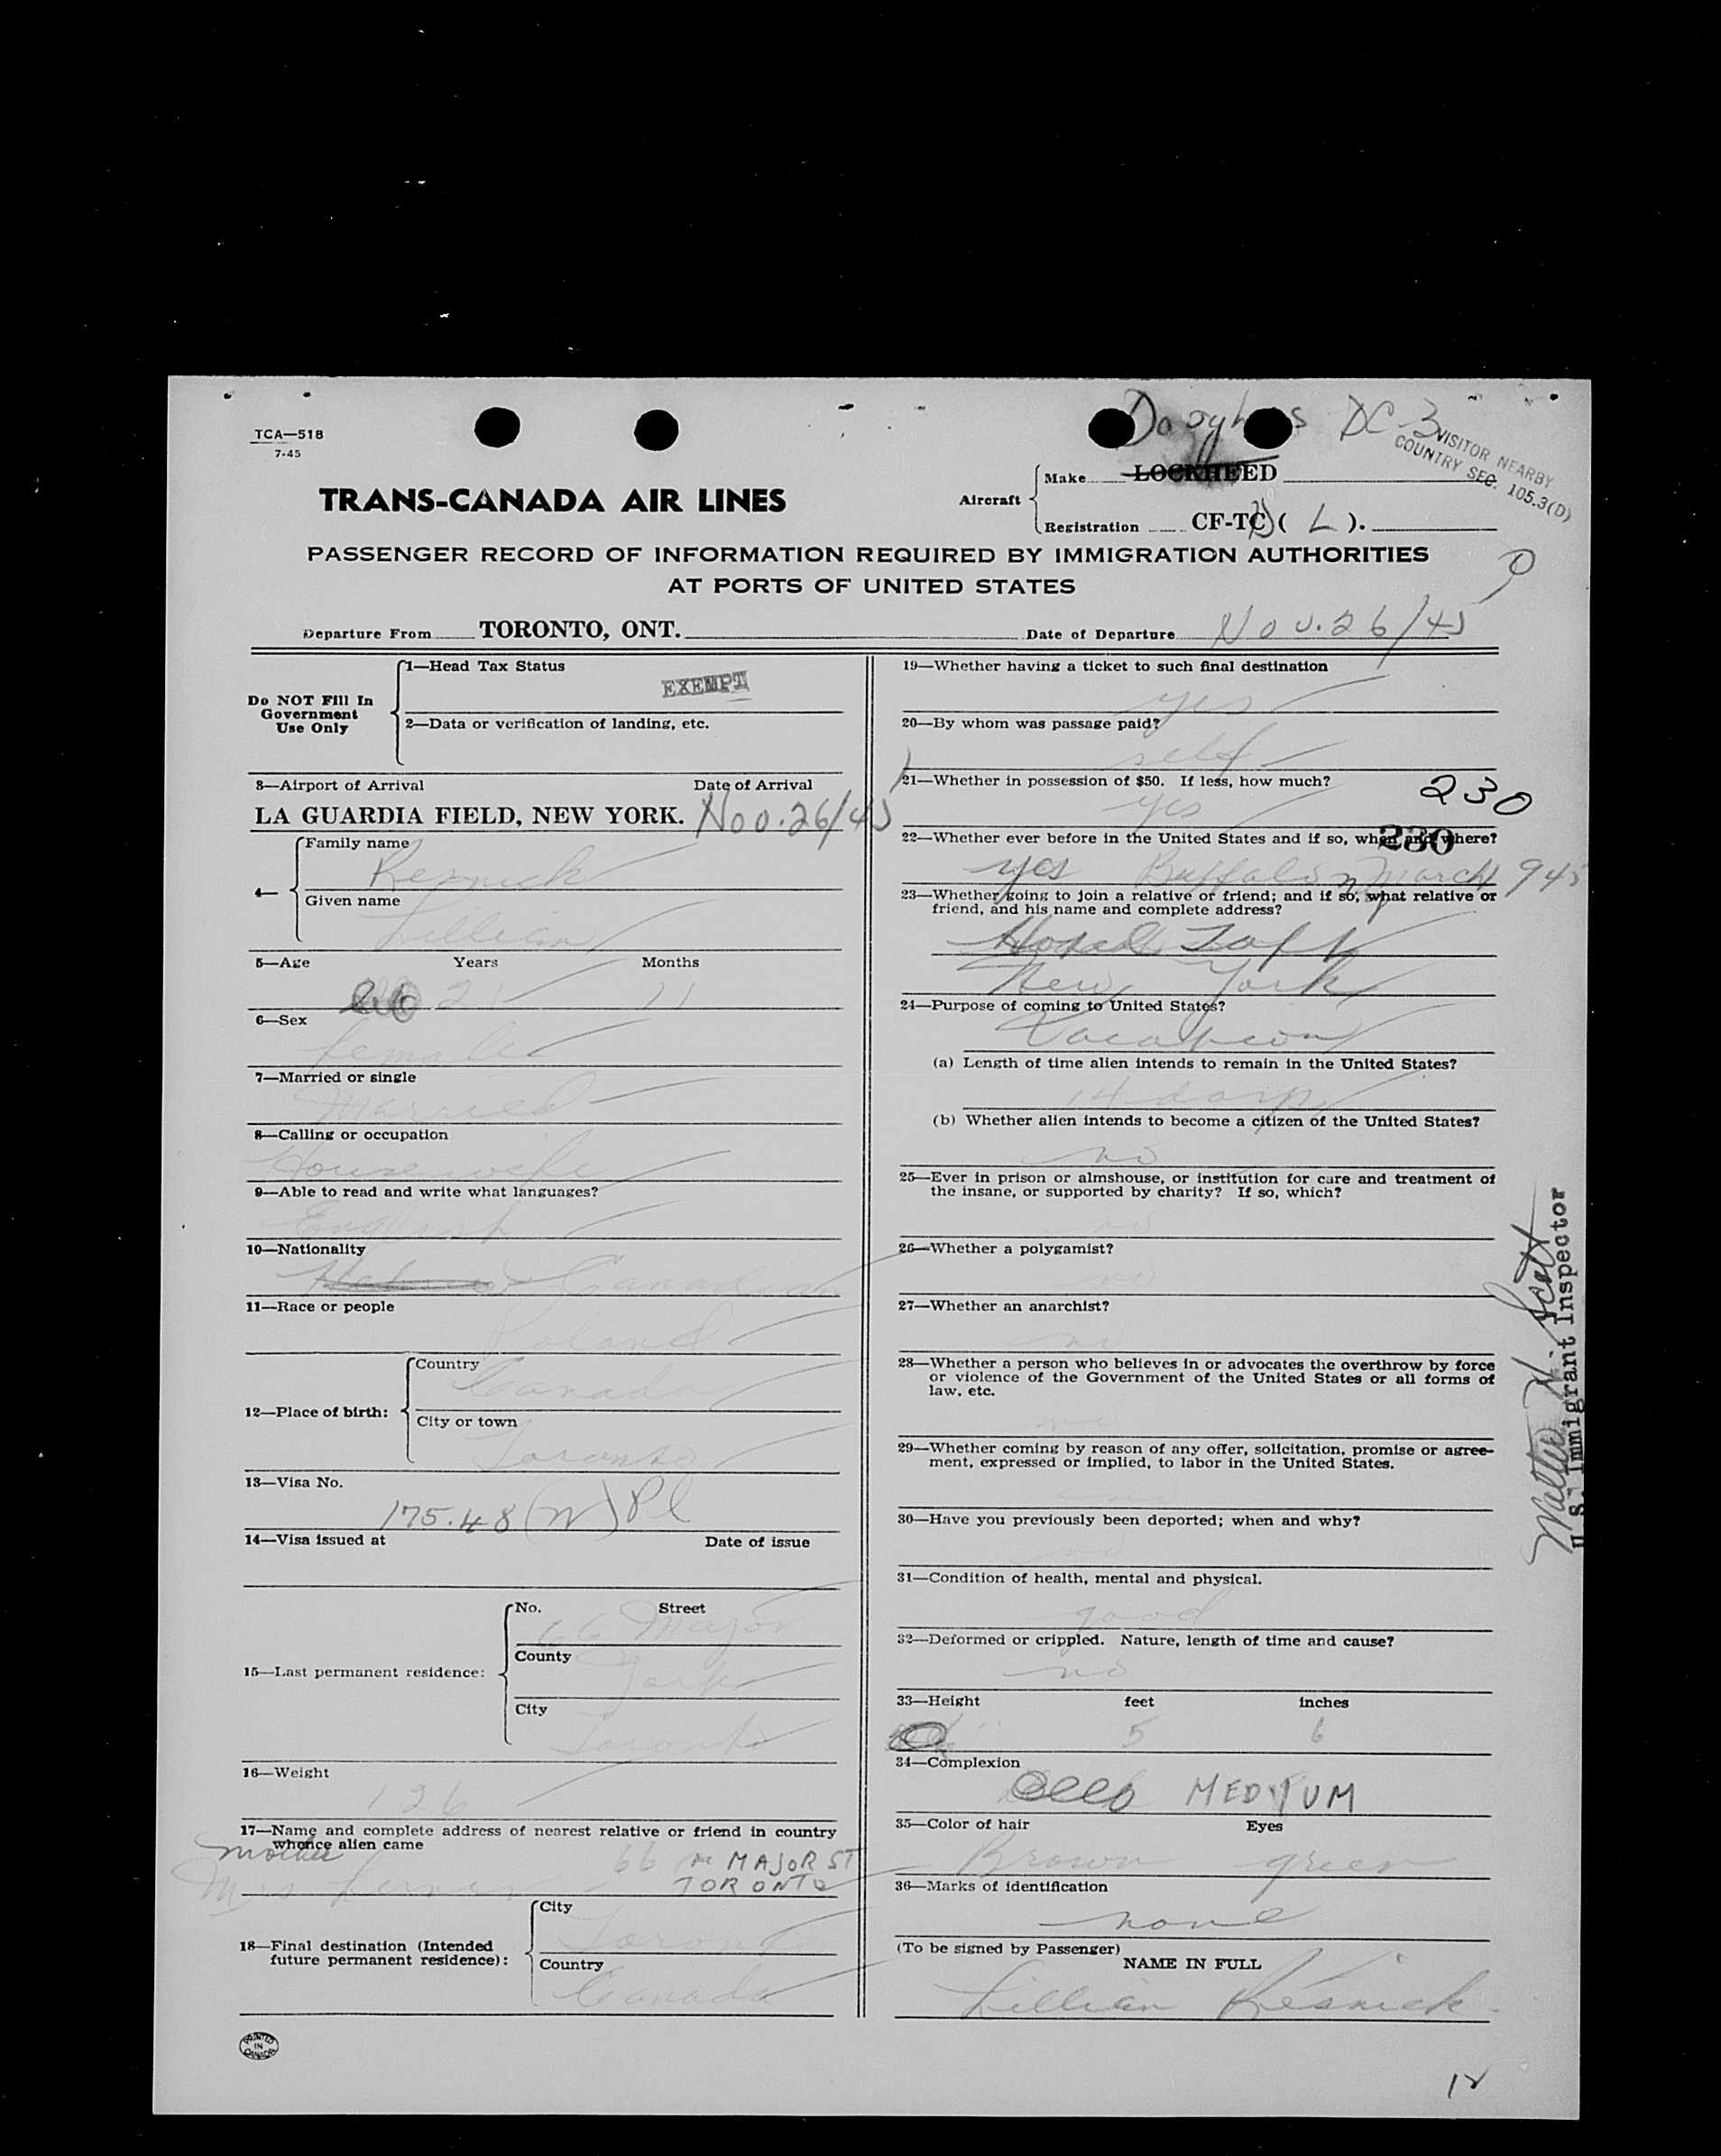 Douglas DC-3
VISITOR NEARBY
COUNTRY SEC. 105.3(D)
TCA—518
7-45
TRANS-CANADA AIR LINES
Aircraft
Make LOCKHEED
Registration CF-TC ( L ).
PASSENGER RECORD OF INFORMATION REQUIRED BY IMMIGRATION AUTHORITIES
AT PORTS OF UNITED STATES
Departure From TORONTO, ONT. Date of Departure Nov. 26/45
Do NOT Fill In
Government
Use Only
1—Head Tax Status
EXEMPT
2—Data or verification of landing, etc.
3—Airport of Arrival Date of Arrival
LA GUARDIA FIELD, NEW YORK. Nov. 26/45
4—
Family name
Resnick
Given name
Lillian
5—Age Years Months
21 11
6—Sex
female
7—Married or single
Married
8—Calling or occupation
Housewife
9—Able to read and write what languages?
English
10—Nationality
Hebrew Canadian
11—Race or people
Poland
12—Place of birth:
Country
Canada
City or town
Toronto
13—Visa No.
175.48 (W) Pl
14—Visa issued at Date of issue
15—Last permanent residence:
No. Street
66 Major
County
York
City
Toronto
16—Weight
126
17—Name and complete address of nearest relative or friend in country
whence alien came
mother
Mrs 66 MAJOR ST
TORONTO
18—Final destination (Intended
future permanent residence):
City
Toronto
Country
Canada
PRINTED
IN
CANADA
19—Whether having a ticket to such final destination
yes
20—By whom was passage paid?
self
21—Whether in possession of $50. If less, how much?
yes
230
22—Whether ever before in the United States and if so, when and where?
230
yes Buffalo March 1945
23—Whether going to join a relative or friend; and if so, what relative or
friend, and his name and complete address?
Hotel Taft
New York
24—Purpose of coming to United States?
Vacation
(a) Length of time alien intends to remain in the United States?
14 days
(b) Whether alien intends to become a citizen of the United States?
no
25—Ever in prison or almshouse, or institution for care and treatment of
the insane, or supported by charity? If so, which?
no
26—Whether a polygamist?
no
27—Whether an anarchist?
no
28—Whether a person who believes in or advocates the overthrow by force
or violence of the Government of the United States or all forms of
law, etc.
no
29—Whether coming by reason of any offer, solicitation, promise or agree-
ment, expressed or implied, to labor in the United States.
no
30—Have you previously been deported; when and why?
no
31—Condition of health, mental and physical.
good
32—Deformed or crippled. Nature, length of time and cause?
no
33—Height feet inches
5 6
34—Complexion
MEDIUM
35—Color of hair Eyes
Brown green
36—Marks of identification
none
(To be signed by Passenger)
NAME IN FULL
Lillian Resnick
Walter N. Scott
U.S. Immigrant Inspector
12